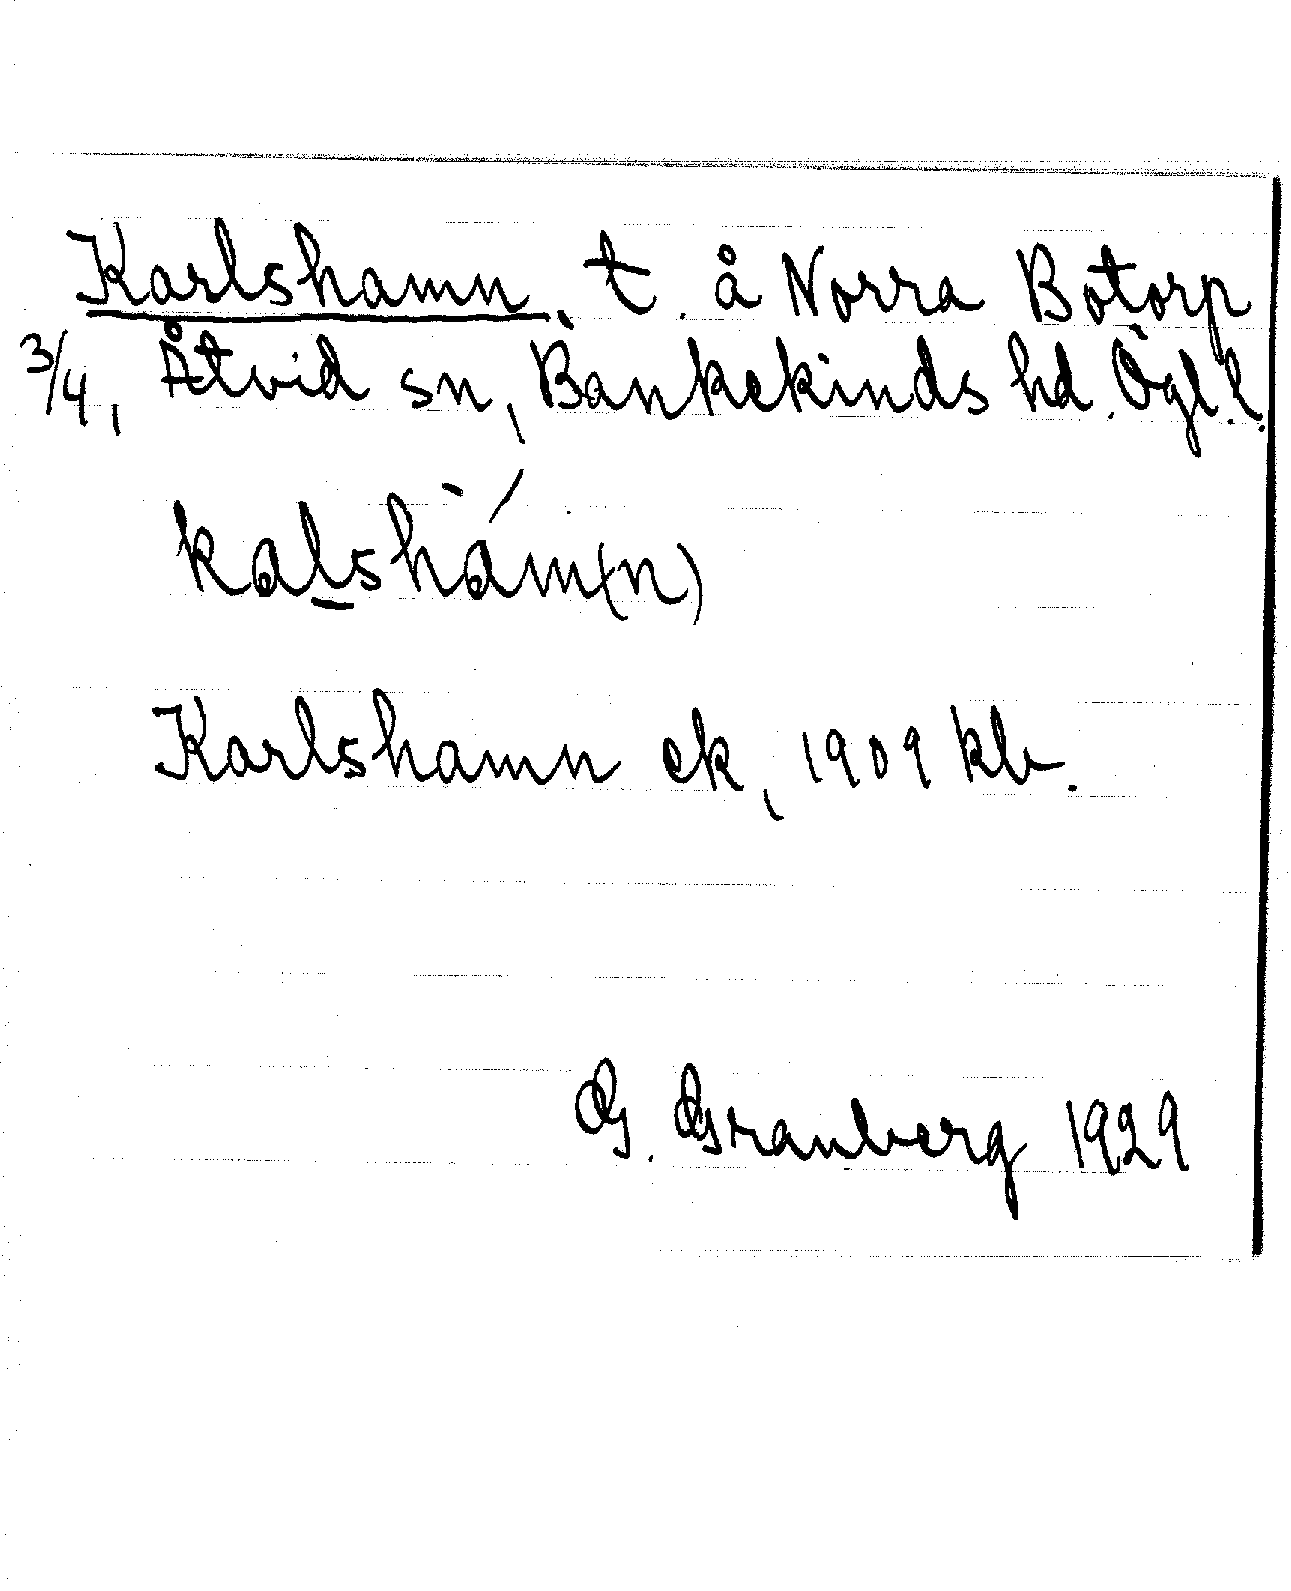 Karlshamn, t. å Norra Botorp
3/4, Åtvid sn, Bankekinds hd. Ögl. l.
kalshám(n)
Karlshamn ek, 1909 kb.
G. Granberg 1929